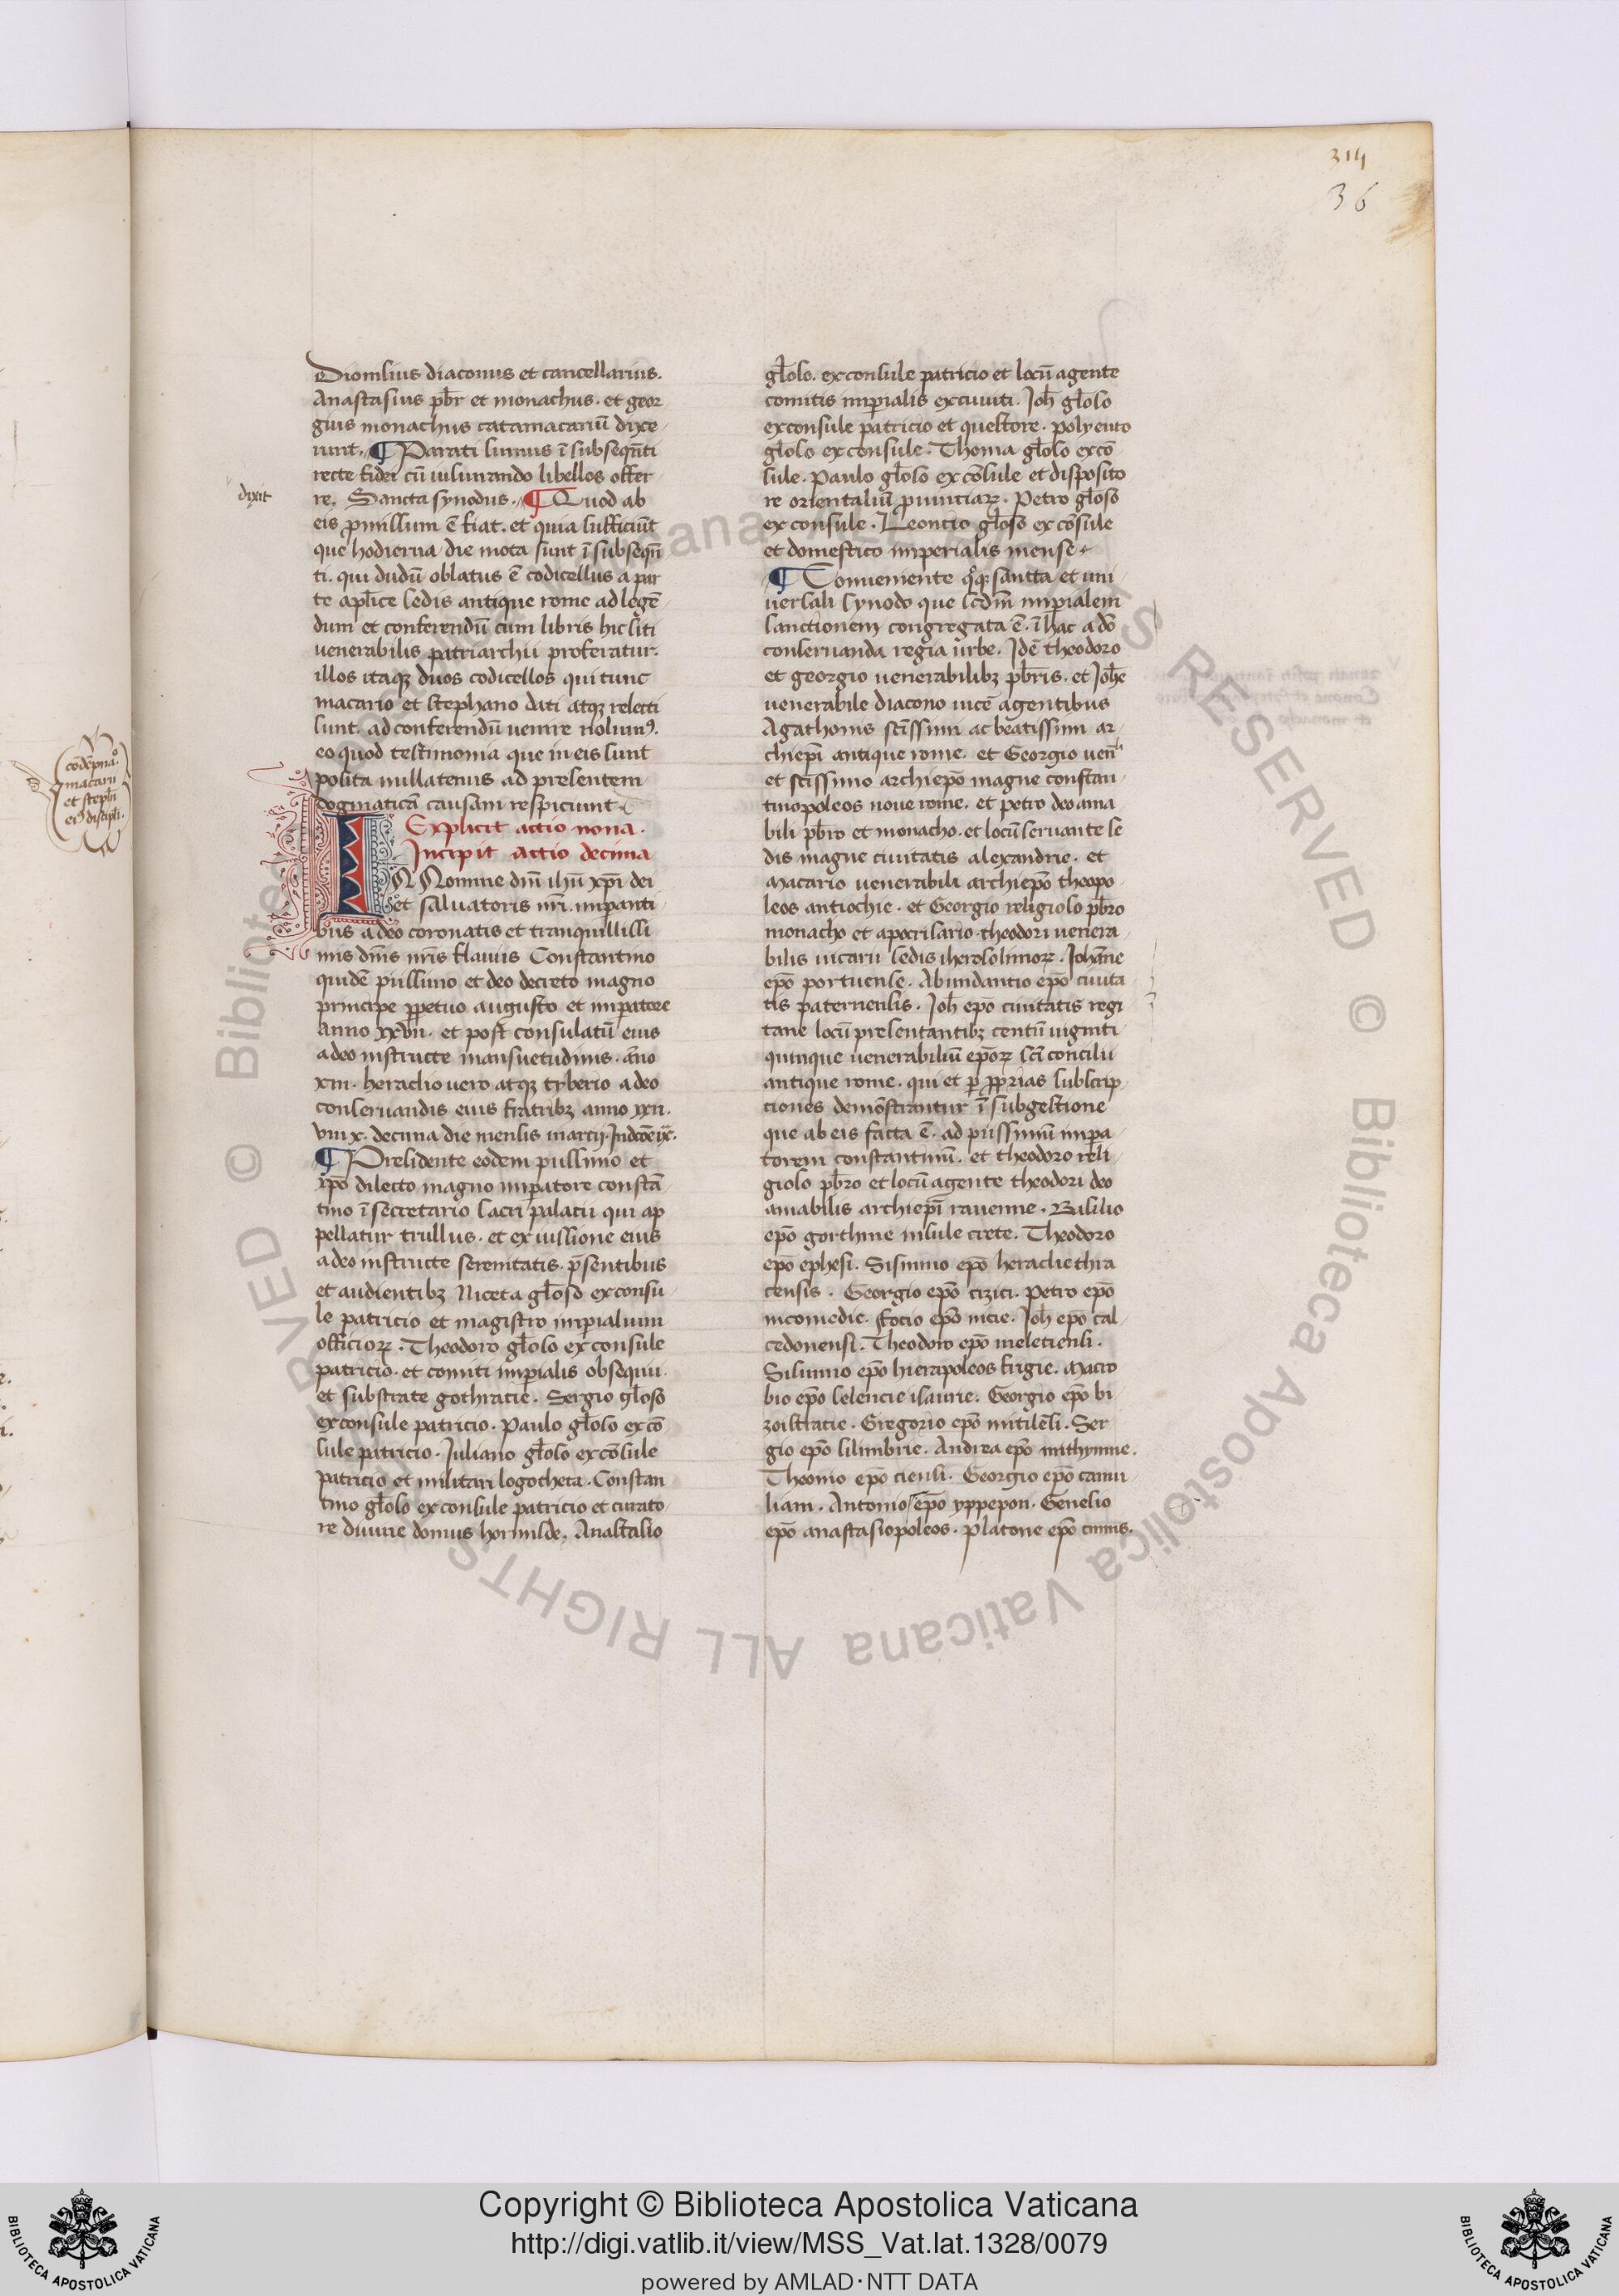 314
36
Dionisius diaconus et cancellarius.
Anastasius pbr̄ et monachus. et geor
gius monachus catamacariū dixe
runt. ¶ Parati sumus ī subseqn̄ti
recte fidei cū iusiurando libellos offer
re. Sancta synodus. ¶ Quod ab
dixit
eis p̄missum ē fiat. et quia sufficiūt
que hodierna die mota sunt ī subseqn̄
ti. qui dudū oblatus ē codicellus a par
te apl̄ice sedis antique rome ad legē
dum et conferendū cum libris hic siti
venerabilis patriarchii proferatur.
illos itaqꝫ duos codicellos qui tunc
macario et stephano dati atqꝫ relecti
sunt. ad conferendū uenire nolumꝰ.
eo quod testimonia que in eis sunt
posita nullatenus ad presentem
dogmaticā causam respiciunt
Explicit actio nona.
Incipit actio decima
IN Nomine dn̄i ihū xp̄i dei
et saluatoris nr̄i. imperanti
bus a deo coronatis et tranquillissi
mis dn̄is nr̄is flauiis Constantino
quidē piissimo et deo decreto magno
principe ꝑpetuo augusto et impatore
Anno xxvii. et post consulatū eius
a deo instructe mansuetudinis. āno
xiii. heraclio uero atqꝫ tyberio a deo
conseruandis eius fratribꝫ anno xxii.
viii x. decima die mensis marcij. Indcōe ix.
¶ Presidente eodem piissimo et
xp̄o dilecto magno impatore constā
tino ī secretario sacri palatii qui ap
pellatur trullus. et ex iussione eius
a deo instructe serenitatis. p̄sentibus
et audientibꝫ Niceta gl̄oso exconsu
le patricio et magistro imperialium
officiorꝫ. Theodoro gl̄oso ex consule
patricio. et comiti imperialis obsequii.
et substrate gothracie. Sergio gl̄oso
exconsule patricio. Paulo gl̄oso ex cō
sule patricio. Iuliano gl̄oso ex cōsule
patricio et militari logotheta. Constan
tino gl̄oso ex consule patricio et curato
re diuine domus hormisde. Anastasio
gl̄oso. exconsule patricio et locū agente
comitis imperialis excuuiti. Joh̄ gl̄oso
exconsule patricio et questore. polyeuto
gl̄oso ex consule. Thoma gl̄oso ex cō
sule. Paulo gl̄oso ex cōsule et disposito
re orientaliū prouintiarꝫ. Petro gl̄oso
ex consule. Leontio gl̄oso ex cōsule
et domestico imperialis mense.
¶ Conueniente qͦqꝫ sancta et uni
uersali synodo que scdm̄ imperialem
sanctionem congregata ē. ī hac a dō
conseruanda regia urbe. Idē theodoro
et georgio uenerabilibꝫ pbr̄is. et Joh̄e
uenerabile diacono uicē agentibus
Agathonis sc̄issimi ac beatissimi ar
chiepī antique rome. et Georgio uen̄li
et sc̄issimo archiepō magne constan
tinopoleos noue rome. et petro deo ama
bili pbr̄o et monacho. et locū seruante se
dis magne ciuitatis alexandrie. et
Macario uenerabili archiepō theopo
leos antiochie. et Georgio religioso pbr̄o
monacho et apocrisario. theodori uenera
bilis uicarii sedis iherosolimorꝫ. Joh̄ane
epō portuense. Abundantio epō ciuita
tis paternensis. Joh̄ epō ciuitatis regi
tane locū presentantibꝫ centū uiginti
quinque uenerabiliū epōrꝫ sc̄i concilii
antique rome. qui et ꝑ ꝓprias subscrip
ciones demōstrantur ī subgestione
que ab eis facta ē. ad piissimū impa
torem constantinū. et theodoro reli
gioso pbr̄o et locū agente theodori deo
amabilis archiepī rauenne. Basilio
epō gorthine insule crete. Theodoro
epō ephesi. Sisinnio epō heraclie thra
censis. Georgio epō cizici. Petro epō
nicomedie. focio epō nicie. Joh̄ epō cal
cedonensi. Theodoro epō meleciensi.
Silunio epō hierapoleos frigie. Macro
bio epō selencie isaurie. Georgio epō bi
zoistracie. Gregorio epō mitilēsi. Ser
gio epō silimbrie. Andrea epō mithymne.
Theonio epō ciensi. Georgio epō camu
liam. Antonio epō yppepon. Genesio
epō anastasiopoleos. Platone epō cinnis.
cōdēpna.ͦ
macarii
et steph̄i
eiꝰ discipli.
Copyright © Biblioteca Apostolica Vaticana
http://digi.vatlib.it/view/MSS_Vat.lat.1328/0079
powered by AMLAD·NTT DATA
BIBLIOTECA APOSTOLICA VATICANA
BIBLIOTECA APOSTOLICA VATICANA
© Biblioteca Apostolica Vaticana ALL RIGHTS RESERVED